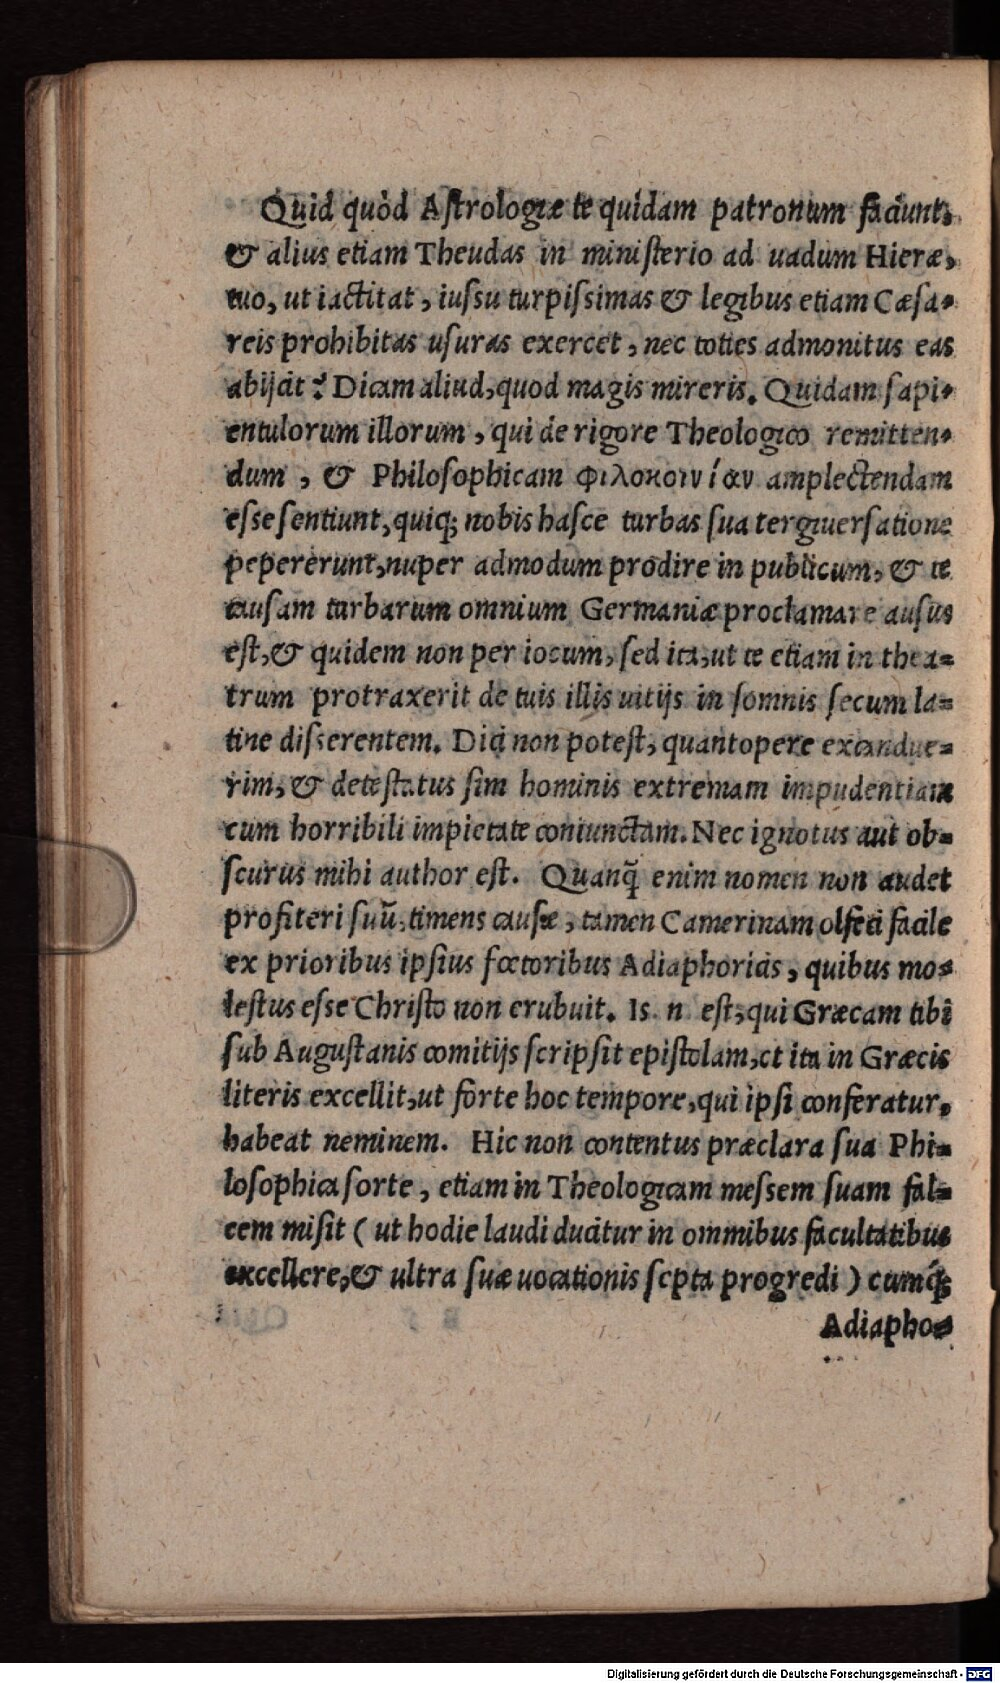 Quid quòd Aſtrologiæ te quidam patronum faciunt,
& alius etiam Theudas in miniſterio ad uadum Hieræ,
tuo, ut iactitat, iuſſu turpiſsimas & legibus etiam Cæſa-
reis prohibitas uſuras exercet, nec toties admonitus eas
abijcit? Dicam aliud, quod magis mireris. Quidam ſapi-
entulorum illorum, qui de rigore Theologico remitten-
dum, & Philoſophicam φιλοκοινίαν amplectendam
eſſe ſentiunt, quiq; nobis haſce turbas ſua tergiuerſatione
pepererunt, nuper admodum prodire in publicum, & te
cauſam turbarum omnium Germaniæ proclamare auſus
eſt, & quidem non per iocum, ſed ita, ut te etiam in thea-
trum protraxerit de tuis illis uitijs in ſomnis ſecum la-
tine diſſerentem. Dici non poteſt, quantopere excandue-
rim, & deteſtatus ſim hominis extremam impudentiam
cum horribili impietate coniunctam. Nec ignotus aut ob-
ſcurus mihi author eſt. Quanq̃ enim nomen non audet
profiteri ſuũ, timens cauſæ, tamen Camerinam olfeci facile
ex prioribus ipſius fœtoribus Adiaphoricis, quibus mo-
leſtus eſſe Chriſto non erubuit. Is. n. eſt, qui Græcam tibi
ſub Auguſtanis comitijs ſcripſit epiſtolam, et ita in Græcis
literis excellit, ut forte hoc tempore, qui ipſi conferatur,
habeat neminem. Hic non contentus præclara ſua Phi-
loſophica ſorte, etiam in Theologicam meſſem ſuam fal-
cem miſit ( ut hodie laudi ducitur in ommibus facultatibus
excellere, & ultra ſuæ uocationis ſepta progredi ) cumq́;
Adiapho-
Digitalisierung gefördert durch die Deutsche Forschungsgemeinschaft - DFG